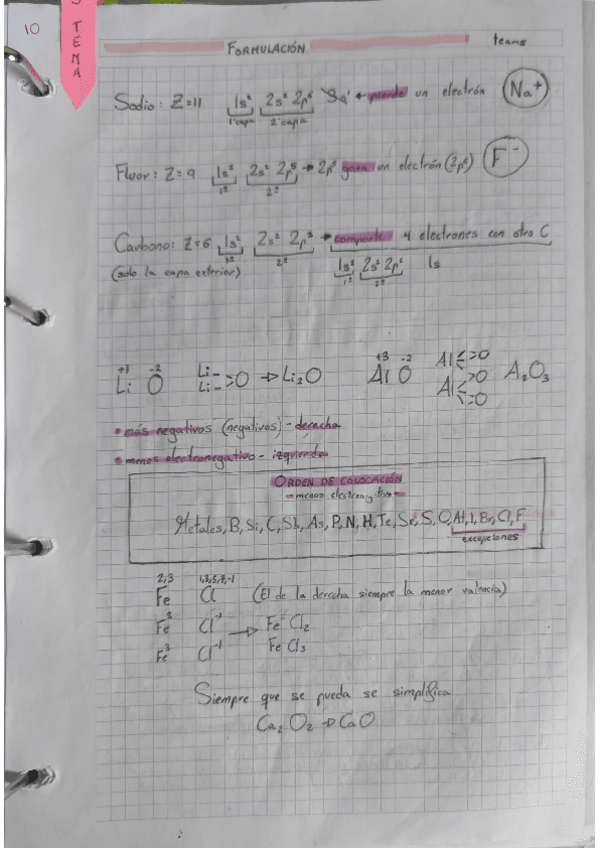 10
TEMA
FORMULACIÓN
teams
Sodio: Z=11 1s² 2s² 2p⁶ 3s¹ pierde un electrón Na⁺
1ªcapa 2ªcapa
Fluor: Z=9 1s² 2s² 2p⁵ → 2p⁶ gana un electrón (2p⁶) F⁻
1ª 2ª
Carbono: Z=6 1s² 2s² 2p² → comparte 4 electrones con otro C
(solo la capa exterior) 1ª 2ª 1s² 2s² 2p⁶ 1s
1ª 2ª
+1 -2 +3 -2
Li O Li- Li- >O → Li₂O Al O Al >O >O Al >O A₂O₃
• más negativos (negativos) - derecha
• menos electronegativo - izquierda
ORDEN DE COLOCACIÓN
menos electronegativo
Metales, B, Si, C, Sb, As, P, N, H, Te, Se, S, O, At, I, Br, Cl, F
excepciones
2,3 1,3,5,7,-1
Fe Cl (El de la derecha siempre la menor valencia)
Fe² Cl⁻¹ → Fe Cl₂
Fe³ Cl⁻¹ Fe Cl₃
Siempre que se pueda se simplifica
Ca₂ O₂ → CaO